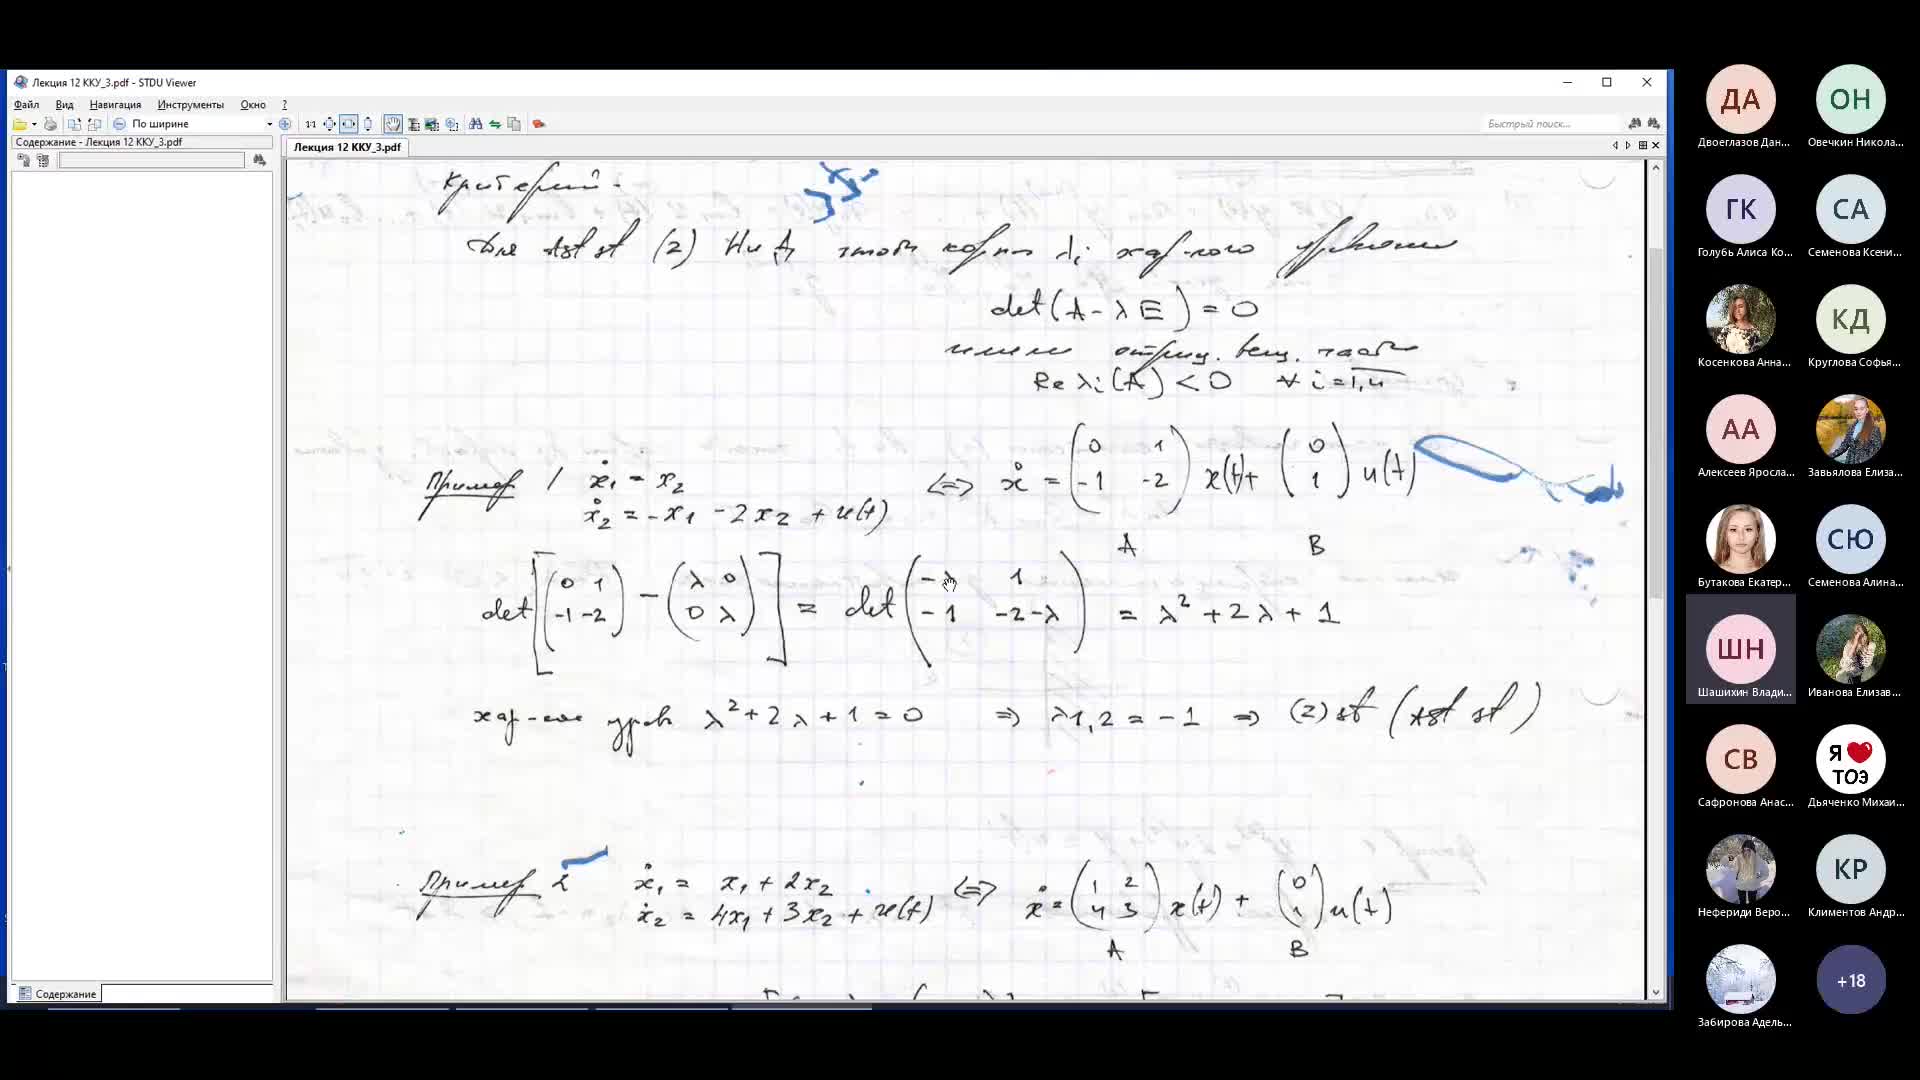 Лекция 12 ККУ_3.pdf - STDU Viewer
Файл Вид Навигация Инструменты Окно ?
По ширине
1:1
Быстрый поиск...
Содержание - Лекция 12 ККУ_3.pdf
Лекция 12 ККУ_3.pdf
Критерий.
Для Ast st (2) Н и Д чтобы корни λi хар-кого уравнения
det(A - λE) = 0
имели отриц. вещ. части
Re λi(A) < 0 ∀ i=1,n
Пример 1 ẋ1 = x2 <=> ẋ = (0 1 -1 -2) x(t) + (0 1) u(t)
ẋ2 = -x1 - 2x2 + u(t)
A B
det[(0 1 -1 -2) - (λ 0 0 λ)] = det(-λ 1 -1 -2-λ) = λ² + 2λ + 1
хар-кое уравн λ² + 2λ + 1 = 0 => λ1,2 = -1 => (2) st (Ast st)
Пример 2 ẋ1 = x1 + 2x2 <=> ẋ = (1 2 4 3) x(t) + (0 1) u(t)
ẋ2 = 4x1 + 3x2 + u(t)
A B
Содержание
ДА ОН
Двоеглазов Дан... Овечкин Никола...
ГК СА
Голубь Алиса Ко... Семенова Ксени...
КД
Косенкова Анна... Круглова Софья...
АА
Алексеев Яросла... Завьялова Елиза...
СЮ
Бутакова Екатер... Семенова Алина...
ШН
Шашихин Влади... Иванова Елизав...
СВ Я ТОЭ
Сафронова Анас... Дьяченко Михаи...
КР
Нефериди Веро... Климентов Андр...
+18
Забирова Адель...